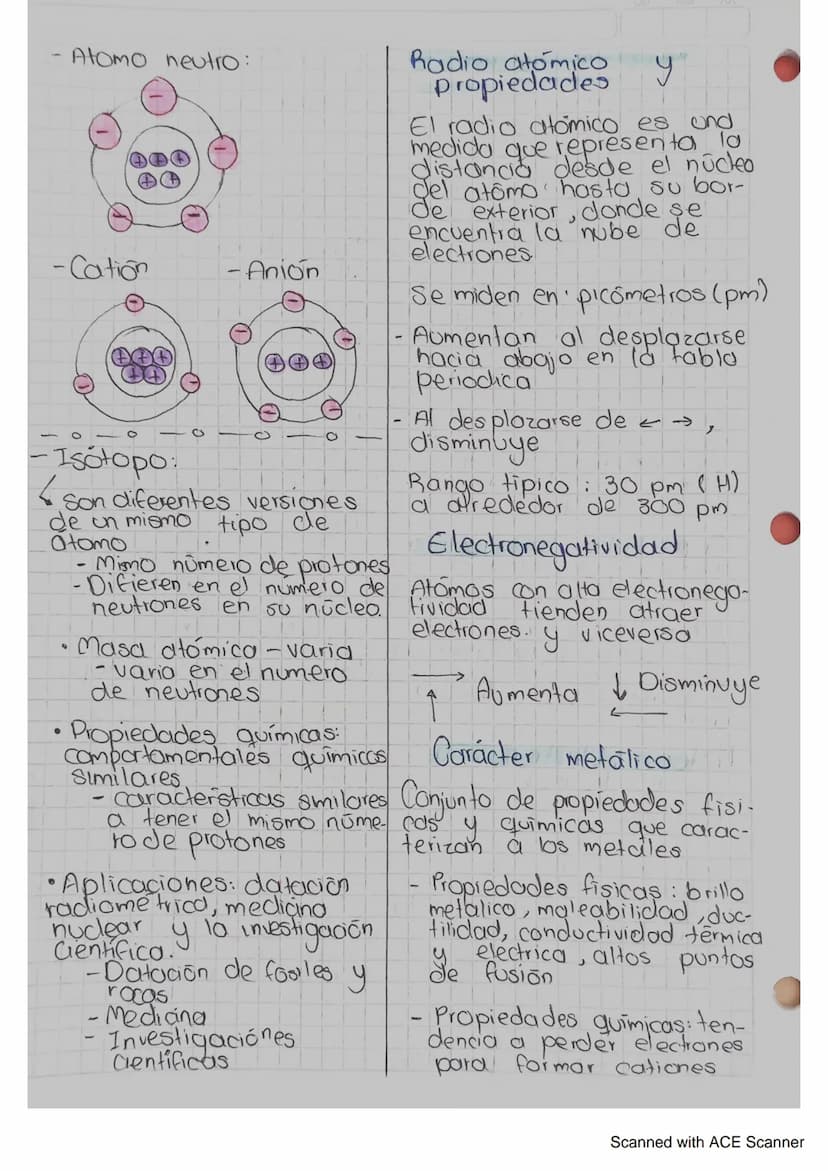 - Atomo neutro:
- Catión
- Anión
- Isótopo:
↳ son diferentes versiones
de un mismo tipo de
átomo
- Mimo número de protones
- Difieren en el número de
neutrones en su núcleo.
• Masa atómica - varia
- varia en el numero
de neutrones
• Propiedades químicas:
comportamentales químicos
similares
- características similares
a tener el mismo núme-
ro de protones
• Aplicaciones: datación
radiométrica, medicina
nuclear y la investigación
Científica.
- Datación de fósiles y
rocas
- Medicina
- Investigaciónes
Científicas
Radio atómico y
propiedades
El radio atómico es una
medida que representa la
distancia desde el núcleo
del atómo hasta su bor-
de exterior, donde se
encuentra la nube de
electrones
Se miden en picómetros (pm)
- Aumentan al desplazarse
hacia abajo en la tabla
periodica
- Al desplazarse de ← →,
disminuye
Rango típico: 30 pm (H)
a alrededor de 300 pm
Electronegatividad
Atómos con alta electronega-
tividad tienden atraer
electrones y viceversa
→
↑ Aumenta ↓ Disminuye
←
Carácter metálico
Conjunto de propiedades fisi-
cas y químicas que carac-
terizan a los metales
- Propiedades físicas: brillo
metálico, maleabilidad, duc-
tilidad, conductividad térmica
y electrica, altos puntos
de fusión
- Propiedades químicas: ten-
dencia a perder electrones
para formar cationes
Scanned with ACE Scanner